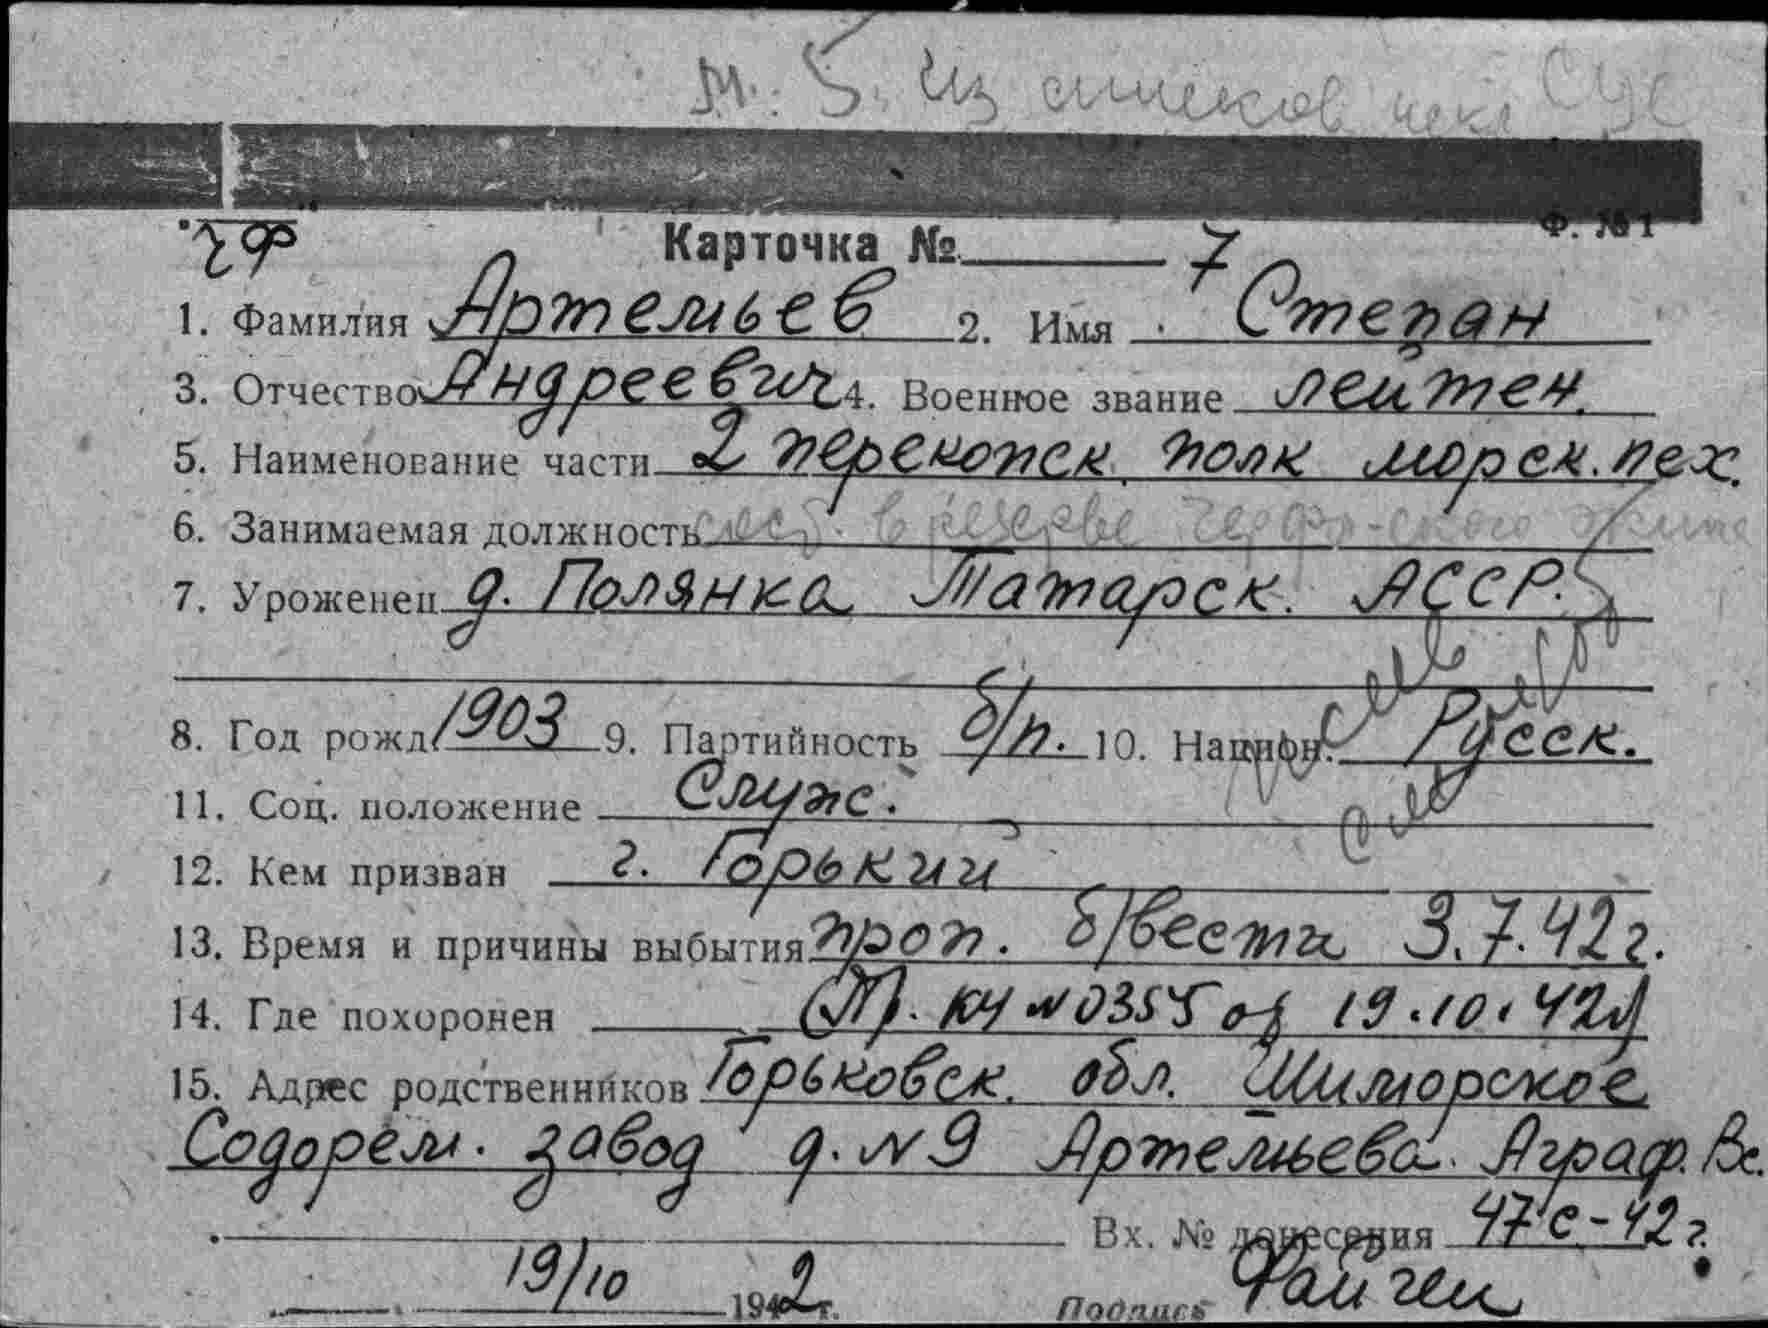 М. Б. Из списков
Ф. №1
ЧФ Карточка № 7
1. Фамилия Артемьев 2. Имя Степан
3. Отчество Андреевич 4. Военное звание лейтен.
5. Наименование части 2 перекопск. полк морск. пех.
6. Занимаемая должность в резерве
7. Уроженец д. Полянка Татарск. АССР.
8. Год рожд. 1903 9. Партийность б/п. 10. Национ. Русск.
11. Соц. положение Служ.
12. Кем призван г. Горький
13. Время и причины выбытия проп. б/вести 3.7.42г.
14. Где похоронен (Пр. КЧ №0355 от 19.10.42г)
15. Адрес родственников Горьковск. обл. Шиморское
Судорем. завод д. №9 Артемьева Аграф. Вс.
Вх. № донесения 47с-42г.
19/10 1942г. Подпись